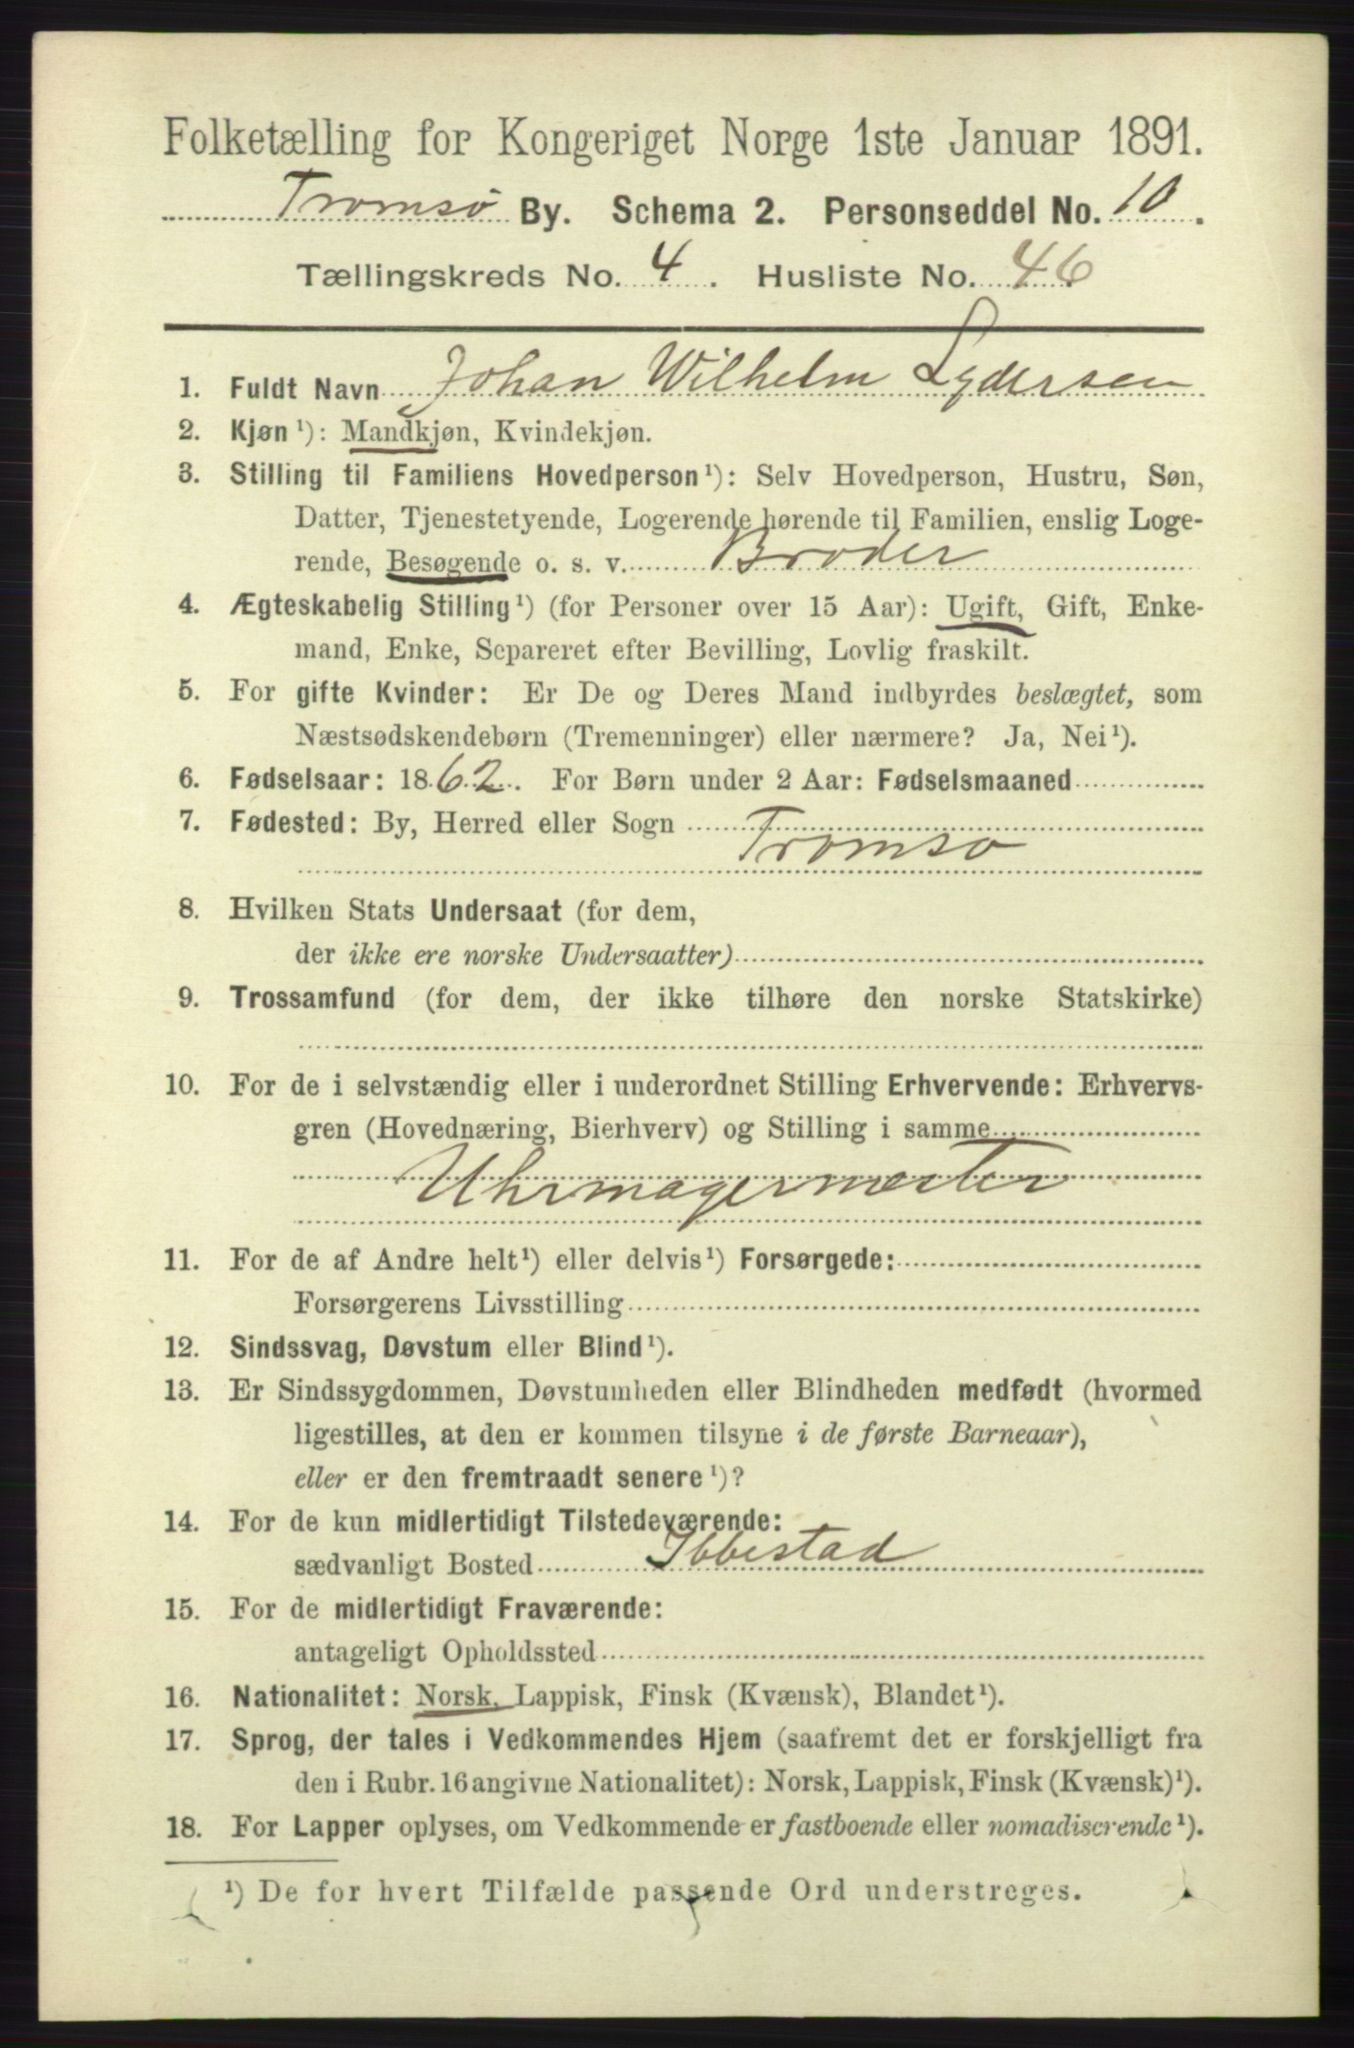 Folketælling for Kongeriget Norge 1ste Januar 1891.
Tromsö By. Schema 2. Personseddel No. 10.
Tællingskreds No. 4. Husliste No. 46.
1. Fuldt Navn Johan Wilhelm Lydersen
2. Kjøn ¹): Mandkjøn, Kvindekjøn.
3. Stilling til Familiens Hovedperson ¹): Selv Hovedperson, Hustru, Søn,
Datter, Tjenestetyende, Logerende hørende til Familien, enslig Loge-
rende, Besøgende o. s. v. Broder
4. Ægteskabelig Stilling ¹) (for Personer over 15 Aar): Ugift, Gift, Enke-
mand, Enke, Separeret efter Bevilling, Lovlig fraskilt.
5. For gifte Kvinder: Er De og Deres Mand indbyrdes beslægtet, som
Næstsødskendebørn (Tremenninger) eller nærmere? Ja, Nei ¹).
6. Fødselsaar: 1862. For Børn under 2 Aar: Fødselsmaaned
7. Fødested: By, Herred eller Sogn
Tromsö
8. Hvilken Stats Undersaat (for dem,
der ikke ere norske Undersaatter)
9. Trossamfund (for dem, der ikke tilhøre den norske Statskirke)
10. For de i selvstændig eller i underordnet Stilling Erhvervende: Erhvervs-
gren (Hovednæring, Bierhverv) og Stilling i samme
Uhrmagermester
11. For de af Andre helt ¹) eller delvis ¹) Forsørgede:
Forsørgerens Livsstilling
12. Sindssvag, Døvstum eller Blind ¹).
13. Er Sindssygdommen, Døvstumheden eller Blindheden medfødt (hvormed
ligestilles, at den er kommen tilsyne i de første Barneaar),
eller er den fremtraadt senere ¹)?
14. For de kun midlertidigt Tilstedeværende:
sædvanligt Bosted Ibbestad
15. For de midlertidigt Fraværende:
antageligt Opholdssted
16. Nationalitet: Norsk, Lappisk, Finsk (Kvænsk), Blandet ¹).
17. Sprog, der tales i Vedkommendes Hjem (saafremt det er forskjelligt fra
den i Rubr. 16 angivne Nationalitet): Norsk, Lappisk, Finsk (Kvænsk) ¹).
18. For Lapper oplyses, om Vedkommende er fastboende eller nomadiserende ¹).
¹) De for hvert Tilfælde passende Ord understreges.